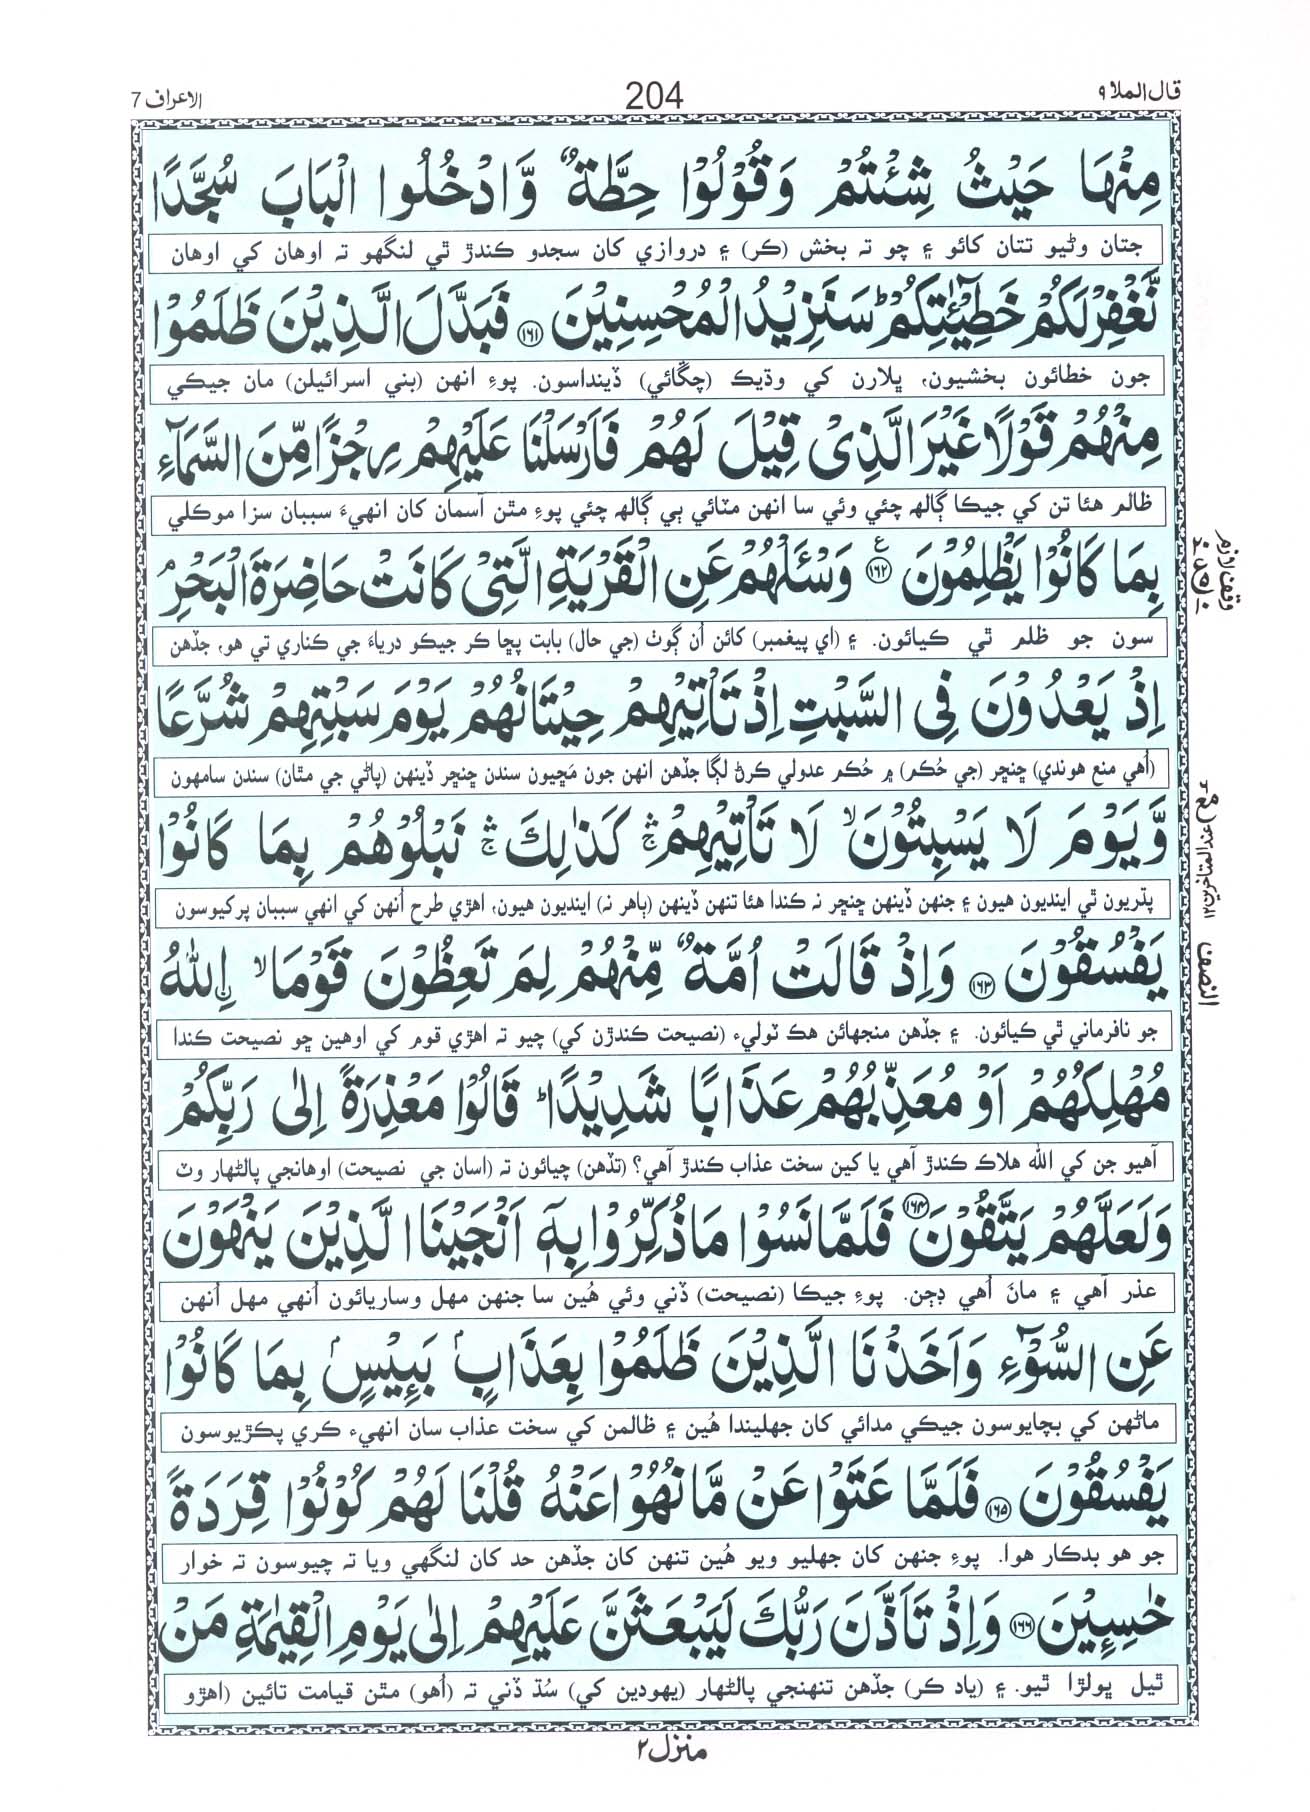 قال الملا ٩
204
الاعراف 7
مِنْهَا حَيْثُ شِئْتُمْ وَقُوْلُوْا حِطَّةٌ وَّادْخُلُوا الْبَابَ سُجَّدًا
جتان وڻيو تتان کائو ۽ چو تہ بخش (ڪر) ۽ دروازي کان سجدو ڪندڙ ٿي لنگهو تہ اوهان کي اوهان
نَّغْفِرْ لَكُمْ خَطِيْٓئٰتِكُمْ ؕ سَنَزِيْدُ الْمُحْسِنِيْنَ ﴿۱۶۱﴾ فَبَدَّلَ الَّذِيْنَ ظَلَمُوْا
جون خطائون بخشيون، ڀلارن کي وڌيڪ (چڱائي) ڏينداسون. پوءِ انهن (بني اسرائيلن) مان جيڪي
مِنْهُمْ قَوْلًا غَيْرَ الَّذِىْ قِيْلَ لَهُمْ فَاَرْسَلْنَا عَلَيْهِمْ رِجْزًا مِّنَ السَّمَآءِ
ظالم هئا تن کي جيڪا ڳالهہ چئي وئي سا انهن مٽائي ٻي ڳالهہ چئي پوءِ مٿن آسمان کان انهيءَ سببان سزا موڪلي
بِمَا كَانُوْا يَظْلِمُوْنَ ﴿۱۶۲﴾ ع وَسْئَلْهُمْ عَنِ الْقَرْيَةِ الَّتِىْ كَانَتْ حَاضِرَةَ الْبَحْرِ م
وقف لازم
سون جو ظلم ٿي ڪيائون. ۽ (اي پيغمبر) کائن اُن ڳوٺ (جي حال) بابت پڇا ڪر جيڪو درياءَ جي ڪناري تي هو، جڏهن
اِذْ يَعْدُوْنَ فِى السَّبْتِ اِذْ تَاْتِيْهِمْ حِيْتَانُهُمْ يَوْمَ سَبْتِهِمْ شُرَّعًا
(اُهي منع هوندي) ڇنڇر (جي حُڪم) ۾ حُڪم عدولي ڪرڻ لڳا جڏهن انهن جون مَڇيون سندن ڇنڇر ڏينهن (پاڻي جي مٿان) سندن سامهون
وَّيَوْمَ لَا يَسْبِتُوْنَ ۙ لَا تَاْتِيْهِمْ ۛۚ كَذٰلِكَ ۛۚ نَبْلُوْهُمْ بِمَا كَانُوْا
عند المتاخرين ١٢
پڌريون ٿي اينديون هيون ۽ جنهن ڏينهن ڇنڇر نہ ڪندا هئا تنهن ڏينهن (ٻاهر نہ) اينديون هيون، اهڙي طرح اُنهن کي انهي سببان پرکيوسون
يَفْسُقُوْنَ ﴿۱۶۳﴾ وَاِذْ قَالَتْ اُمَّةٌ مِّنْهُمْ لِمَ تَعِظُوْنَ قَوْمَا ۙ اِۨللّٰهُ
النصف
جو نافرماني ٿي ڪيائون. ۽ جڏهن منجهائن هڪ ٽوليءَ (نصيحت ڪندڙن کي) چيو تہ اهڙي قوم کي اوهين ڇو نصيحت ڪندا
مُهْلِكُهُمْ اَوْ مُعَذِّبُهُمْ عَذَابًا شَدِيْدًا ؕ قَالُوْا مَعْذِرَةً اِلٰى رَبِّكُمْ
آهيو جن کي الله هلاڪ ڪندڙ آهي يا کين سخت عذاب ڪندڙ آهي؟ (تڏهن) چيائون تہ (اسان جي نصيحت) اوهانجي پالڻهار وٽ
وَلَعَلَّهُمْ يَتَّقُوْنَ ﴿۱۶۴﴾ فَلَمَّا نَسُوْا مَا ذُكِّرُوْا بِهٖٓ اَنْجَيْنَا الَّذِيْنَ يَنْهَوْنَ
عذر آهي ۽ مانَ اُهي ڊڄن. پوءِ جيڪا (نصيحت) ڏني وئي هُين سا جنهن مهل وساريائون اُنهي مهل اُنهن
عَنِ السُّوْٓءِ وَاَخَذْنَا الَّذِيْنَ ظَلَمُوْا بِعَذَابٍۢ بَئِيْسٍۢ بِمَا كَانُوْا
ماڻهن کي بچايوسون جيڪي مدائي کان جهليندا هُين ۽ ظالمن کي سخت عذاب سان انهيءَ ڪري پڪڙيوسون
يَفْسُقُوْنَ ﴿۱۶۵﴾ فَلَمَّا عَتَوْا عَنْ مَّا نُهُوْا عَنْهُ قُلْنَا لَهُمْ كُوْنُوْا قِرَدَةً
جو هو بدڪار هوا. پوءِ جنهن کان جهليو ويو هُين تنهن کان جڏهن حد کان لنگهي ويا تہ چيوسون تہ خوار
خٰسِئِيْنَ ﴿۱۶۶﴾ وَاِذْ تَاَذَّنَ رَبُّكَ لَيَبْعَثَنَّ عَلَيْهِمْ اِلٰى يَوْمِ الْقِيٰمَةِ مَنْ
ٿيل ڀولڙا ٿيو. ۽ (ياد ڪر) جڏهن تنهنجي پالڻهار (يهودين کي) سُڌ ڏني تہ (اُهو) مٿن قيامت تائين (اهڙو
منزل ٢